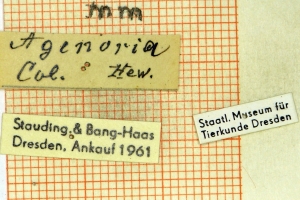 mm
Agenoria
Col. Hew.
Stauding. & Bang-Haas
Dresden. Ankauf 1961
Staatl. Museum für
Tierkunde Dresden